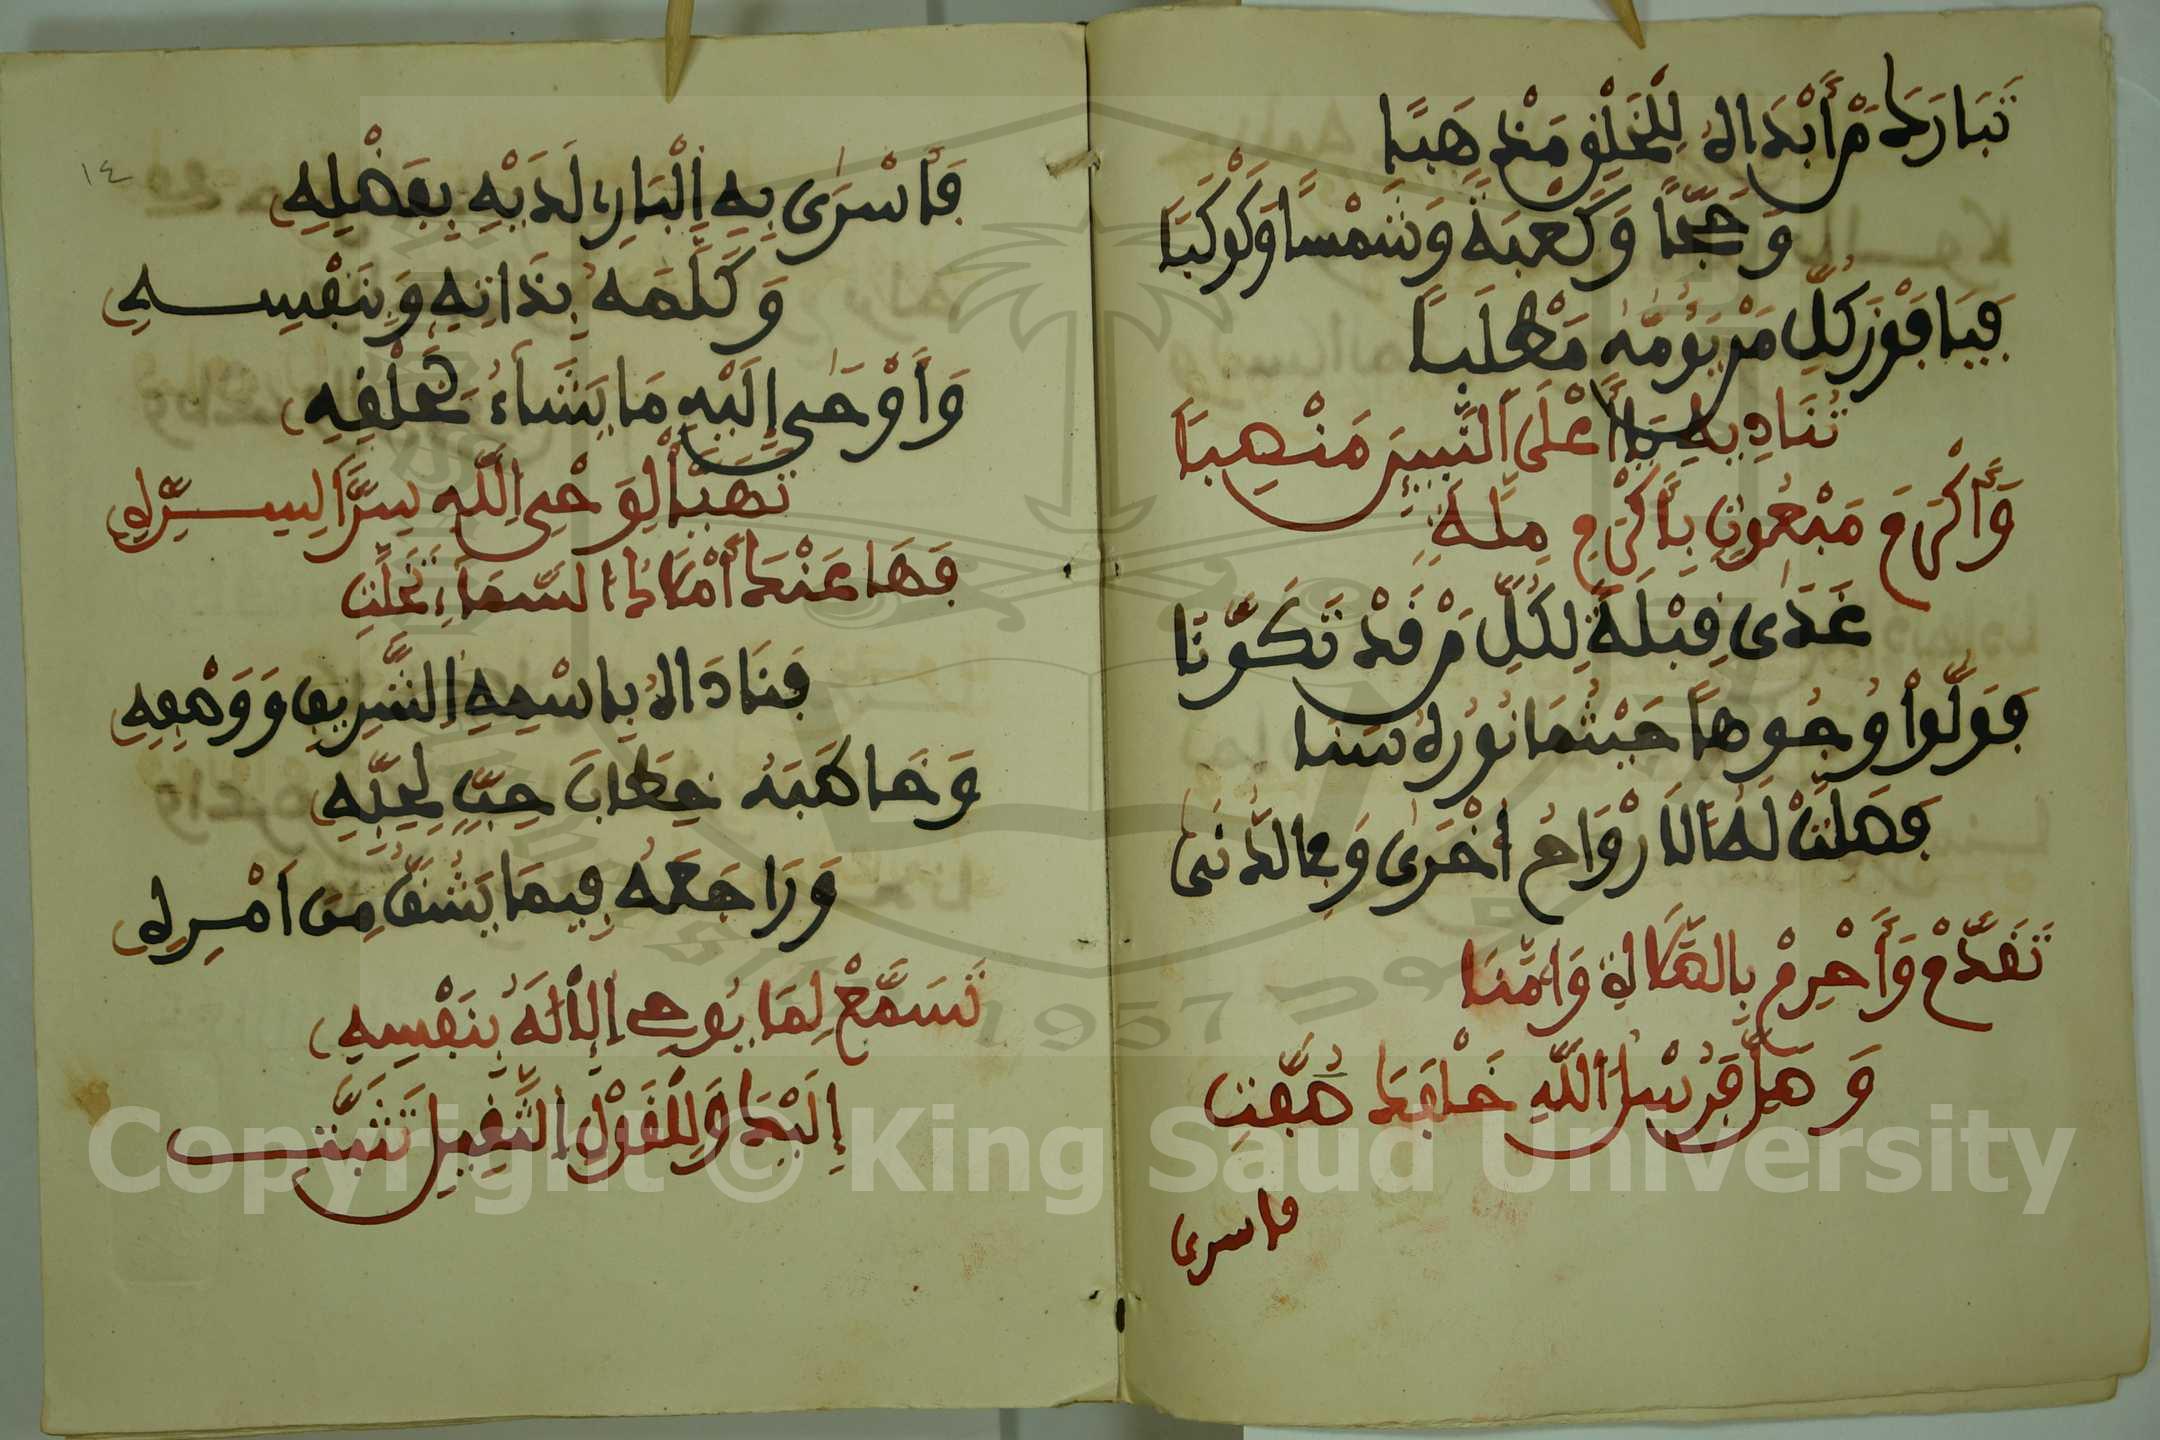 تَبَارَكَ مَنْ أَبْدَاهُ لِلْخَلْقِ مَذْهَبًا
وَحَجًّا وَكَعْبَةً وَشَمْسًا وَكَوْكَبَا
فَيَا فَوْزَ كُلِّ مَنْ يَؤُمُّهُ مَطْلَبًا
تُنَادِيهِ يَا أَعْلَى النَّبِيِّينَ مَنْصِبًا
وَأَكْرَمَ مَبْعُوثٍ بِأَكْرَمِ مِلَّةِ
غَدَى قِبْلَةً لِكُلِّ مَنْ قَدْ تَكَوَّنَا
فَوَلُّوا وُجُوهًا حَيْثُمَا نُورُهُ سَنَا
فَصَلَّتْ لَهُ الْأَرْوَاحُ أُخْرَى وَفِي الدُّنَى
تَقَدَّمْ وَأَحْرِمْ بِالصَّلَاةِ وَأُمَّنَا
وَصَلِّ فَرُسْلُ اللَّهِ خَلْفَكَ صُفَّتِ
فاسرى
١٤
فَأَسْرَى بِهِ الْبَارِي لَدَيْهِ بِفَضْلِهِ
وَكَلَّمَهُ بِذَاتِهِ وَبِنَفْسِهِ
وَأَوْحَى إِلَيْهِ مَا يَشَاءُ بِخَلْقِهِ
تَهَيَّأْ لِوَحْيِ اللَّهِ سِرًّا لِسِرِّهِ
فَهَا عَنْكَ أَمْلَاكُ السَّمَاءِ تَخَلَّتِ
فَنَادَاهُ بِاسْمِهِ الشَّرِيفِ وَوَصْفِهِ
وَخَاطَبَهُ خِطَابَ حِبٍّ لِحِبِّهِ
وَرَاجَعَهُ فِيمَا يَشُقُّ مِنْ أَمْرِهِ
تَسَمَّعْ لِمَا يُوحِي الْإِلَهُ بِنَفْسِهِ
إِلَيْكَ وَلِلْقَوْلِ الثَّقِيلِ تَثَبَّتِ
Copyright © King Saud University
1957